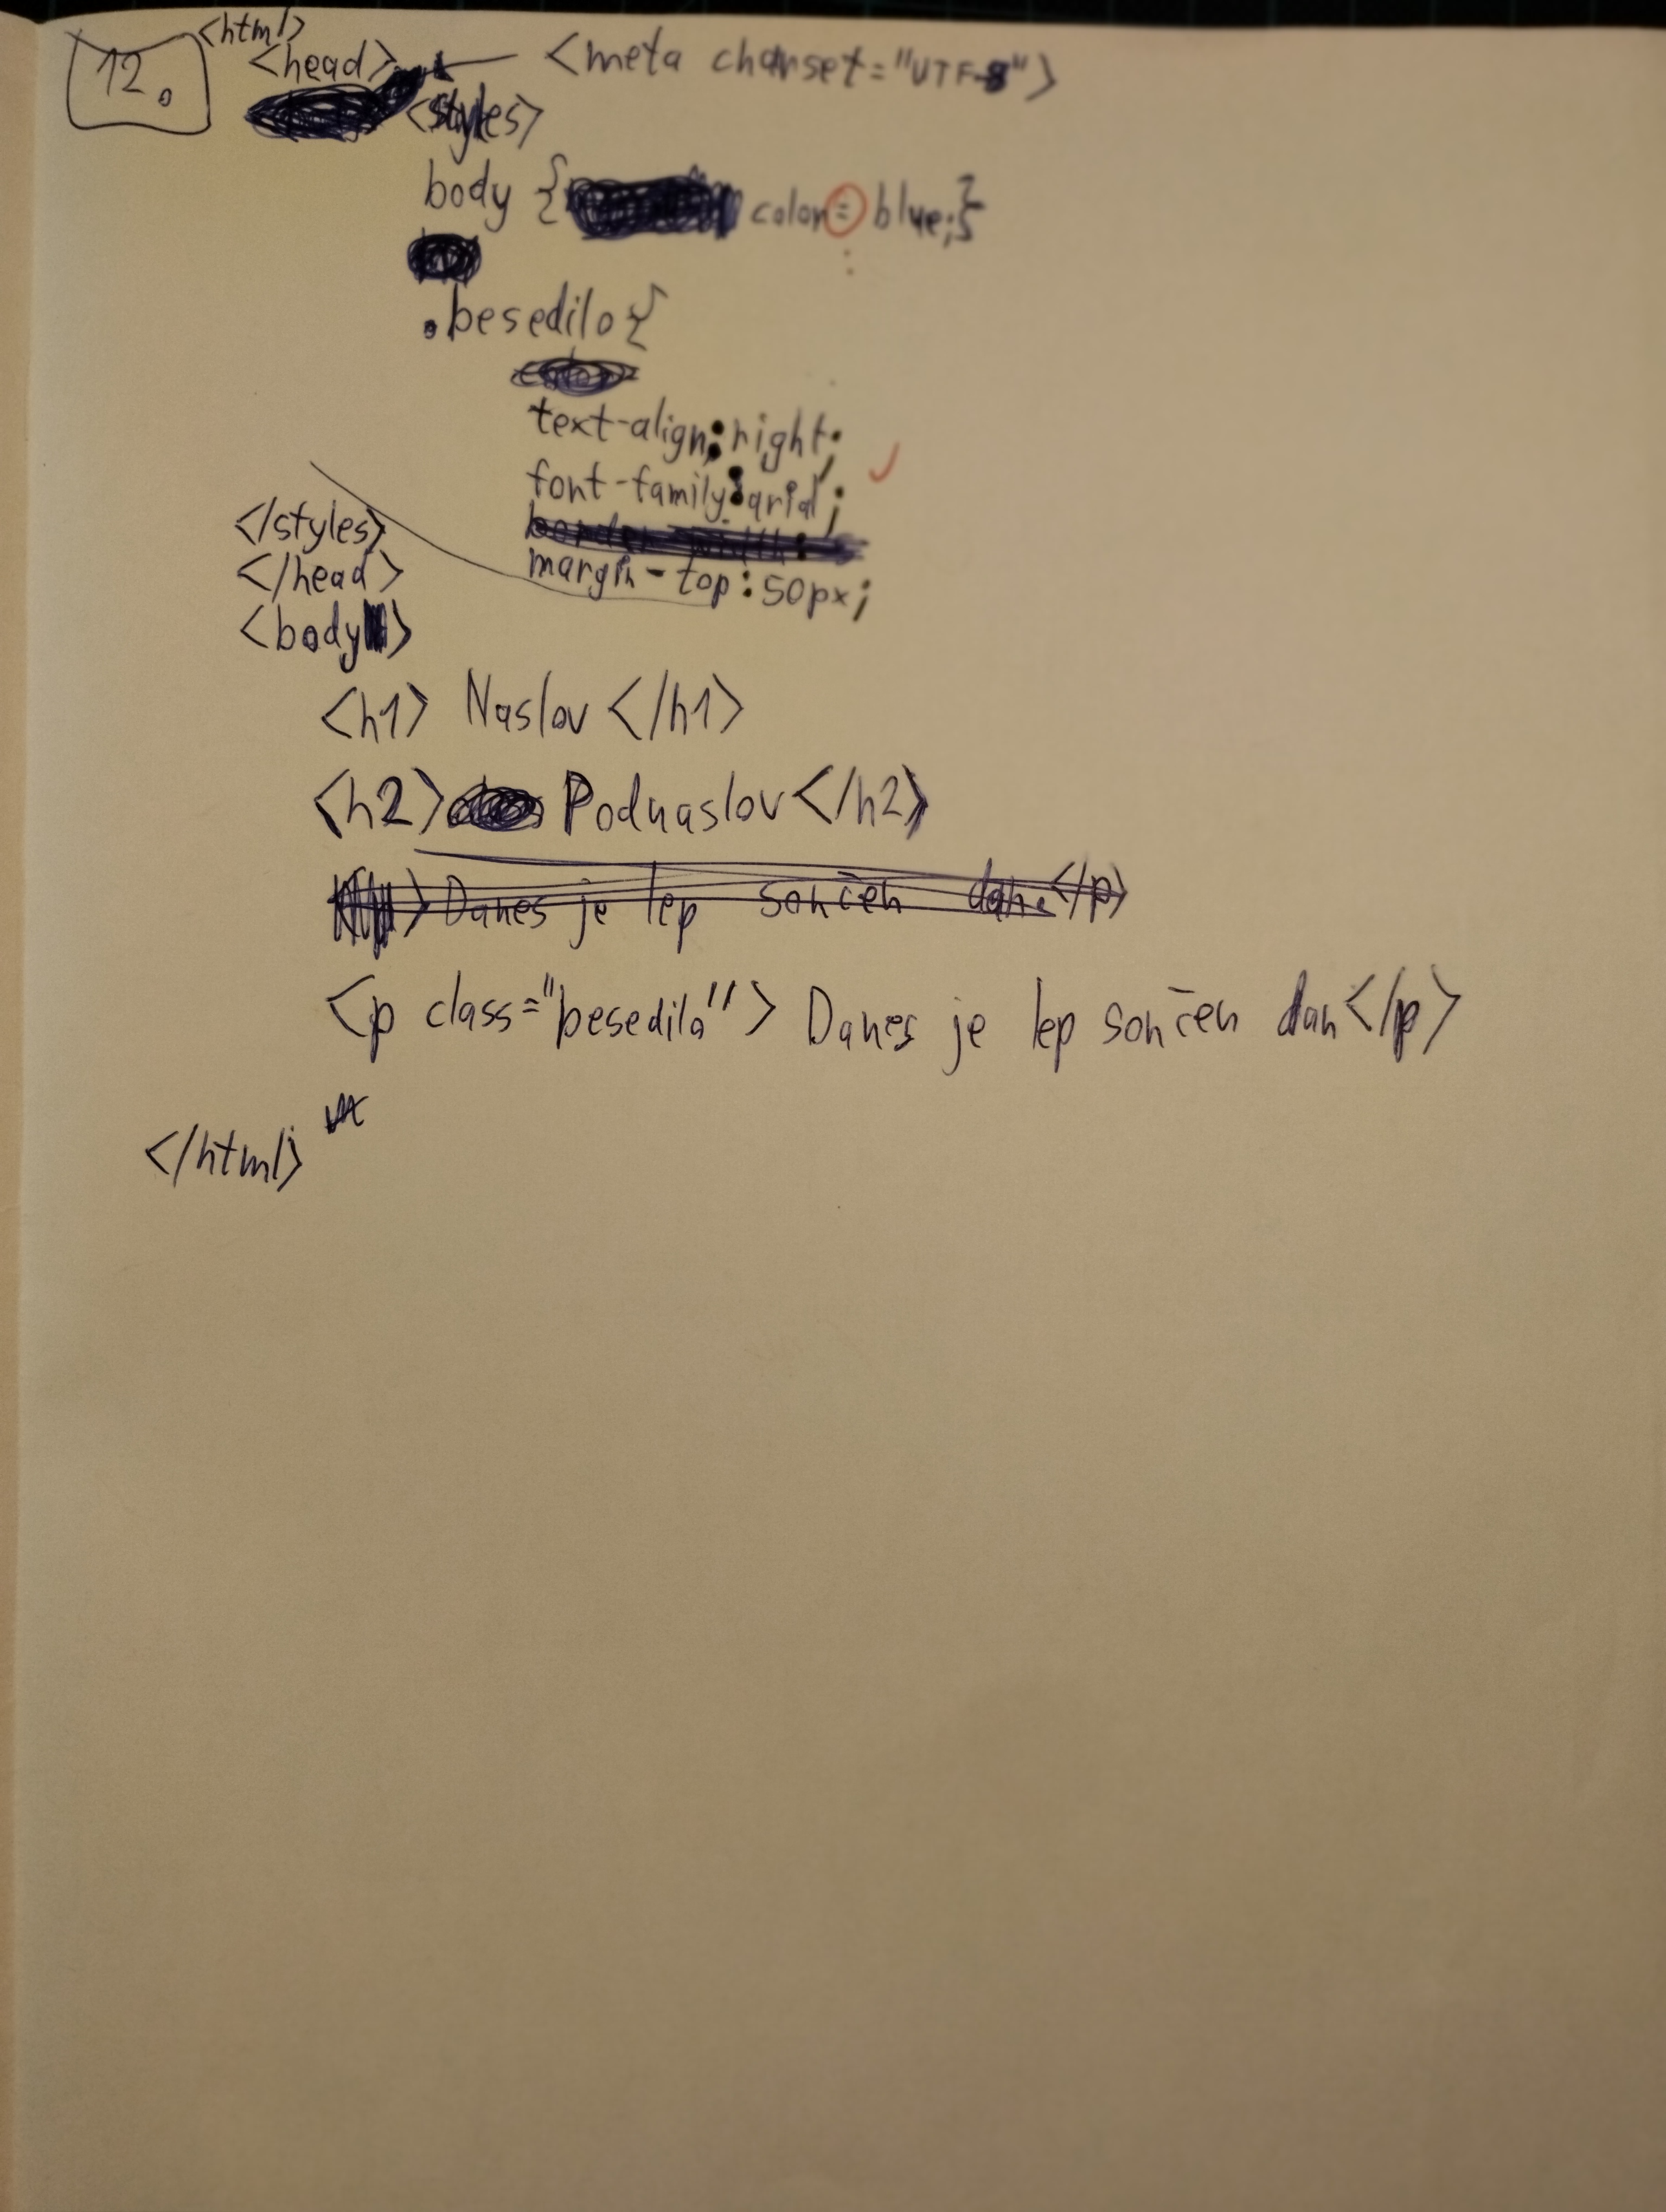 12.
<html>
<head>
<meta charset="UTF-8">
<styles>
body { color= blue;}
:
.besedilo {
text-align: right;
font-family: arial;
margin-top: 50px;
</styles>
</head>
<body>
<h1> Naslov </h1>
<h2> Podnaslov </h2>
Danes je lep sončen dan </p>
<p class="besedilo"> Danes je lep sončen dan </p>
</html>